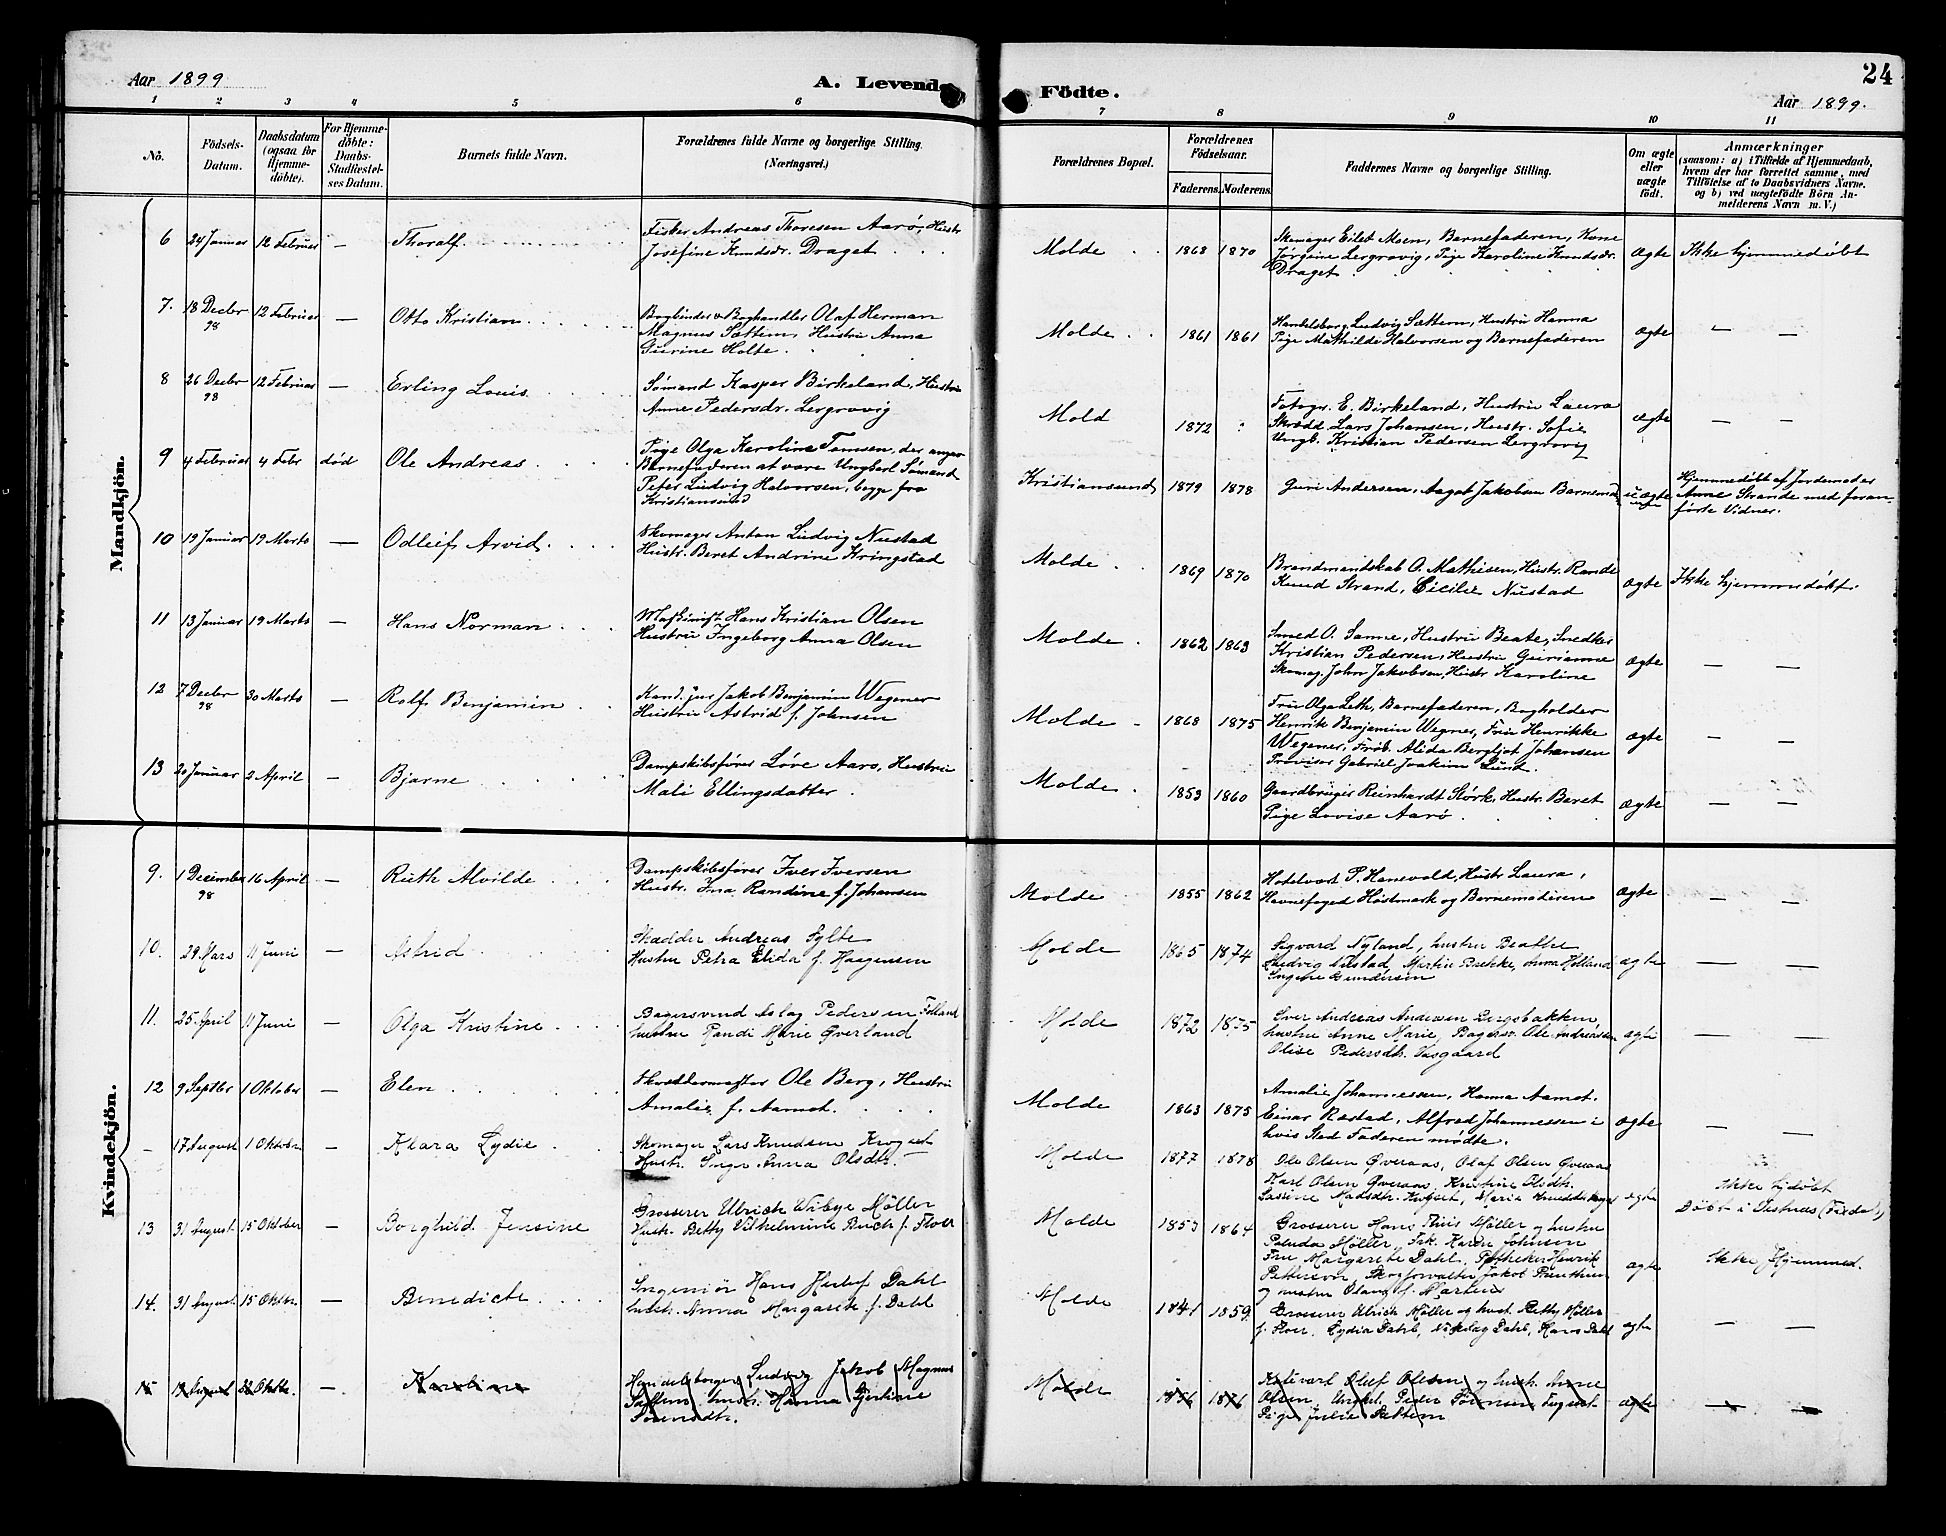 Aar 1899
A. Levende
Födte.
24
Aar 1899.
1 2 3 4 5 6 7 8 9 10 11
No.
Födsels-
Datum.
Daabsdatum
(ogsaa for
Hjemme-
döbte).
For Hjemme-
döbte:
Daabs-
Stadfæstel-
ses Datum.
Barnets fulde Navn.
Forældrenes fulde Navne og borgerlige Stilling.
(Næringsvei.)
Forældrenes Bopæl.
Forældrenes
Födselsaar.
Faderens. Moderens.
Faddernes Navne og borgerlige Stilling.
Om ægte
eller
uægte
födt.
Anmærkninger
(saasom: a) i Tilfælde af Hjemmedaab,
hvem der har forrettet samme, med
Tilföielse af to Daabsvidners Navne,
og b) ved uægtefödte Börn An-
melderens Navn m. V.)
Mandkjön.
6 24 Januar 12 Februar — Thoralf.
Fisker Andreas Thoresen Aarø, Hustr
Josefine Knudsdr. Draget
Molde 1868 1870
Skomager Eilet Moen, Barnefaderen, Kone
Jørgine Lergrovig, Pige Karoline Knudsdr.
Draget
Ægte Ikke hjemmedøbt
7. 18 Decbr 98 12 Februar — Otto Kristian
Bogbinder & Boghandler Olaf Herman
Magnus Sættem, Hustru Anna
Gurine Holte.
Molde 1861 1861
Handelsborg. Ludvig Sættem, Hustru Hanna
Pige Mathilde Halvorsen og Barnefaderen
ægte — —
8 26 Decbr 98 12 Februar — Erling Louis
Sømand Kasper Birkeland, Hustru
Anne Pedersdr. Lergrovig
Mold 1872
Fotogr. E. Birkeland, Hustru Laura
Skrædd Lars Johansen, Hustr. Sofie
Ungk. Kristian Pedersen Lergrovig
ægte — —
9 4 Februar 4 Febr død Ole Andreas
Pige Olga Karoline Tomsen, der angav
Barnefaderen at være Ungkarl Sømand
Peter Ludvig Halvorsen, begge fra
Kristiansund
Kristiansund 1879 1878
Guri Andersen, Aagot Jakobsen Barnemod
uægte
Hjemmedøbt af Jordemoder
Anne Strande med foran-
førte Vidner.
10 19 Januar 19 Marts — Odleif Arvid
Skomager Anton Ludvig Nustad
Hustr. Beret Andrine Kringstad
Molde 1869 1870
Brandmandskab O. Mathisen, Hustr. Rande
Knud Strand, Cicilie Nustad
ægte Ikke hjemmedøbt
11 13 Januar 19 Marts — Hans Norman
Hans Kristian Olsen
Hustru Ingeborg Anna Olsen
Molde 1862 1863
Smed O. Sanne, Hustru Beate, Snedker
Kristian Pedersen, Hustru Gurianne
Skomag, John Jakobsen, Hustr Karoline
ægte — —
12 7 Decbr 98 30 Marts — Rolf Benjamin
Kand. jur Jakob Benjamin Wegener
Hustru Astrid f. Johnsen
Molde 1868 1875
Fru Olga Leth, Barnefaderen, Bogholder
Henrik Benjamin Wegner, Fru Henrikke
Wegener, Frøk. Alida Bergljot Johansen
Provisor Gabriel Joakim Lund.
ægte — —
13 20 Januar 2 April — Bjarne
Dampskibsfører Løve Aarø, Hustru
Mali Ellingsdatter
Molde 1853 1860
Gaardbruger Reinhardt Störk, Hustr. Beret
Pige Lovise Aarø
ægte — —
Kvindekjön.
9. 1 December 98 16 April — Ruth Alvilde
Dampskibsfører Iver Iversen
Hustr. Ina Randine f. Johansen
Molde 1855 1862
Hotelvært P. Hanevold, Hustr Laura,
Havnefoged Höstmark og Barnemoderen
ægte — —
10. 29 Mars 11 Juni — Astrid
Skædder Andreas Sylte
Hustru Petra Elida f. Haagensen
Molde 1865 1874
Sigvard Nyland, hustru Beathe
Ludvig Nustad, Martin Brekke, Anna Holland
Ingebr. Gundersen
ægte — —
11. 25. April 11 Juni — Olga Kristine
Bagersvend Aslag Pedersen Folland
hustru Randi Marie Øverland
Molde 1872 1875
Iver Andreas Andersen Lergsbakken
hustru Anne Marie, Bagersv. Ole Andreassen
Olise Pedersdtr. Vasgaard
ægte — —
12 9 Septbr 1 Oktober — Elen
Skreddermester Ole Berg, Hustru
Amalie f. Aamot.
Molde 1863 1875
Amalie Johannessen, Hanna Aamot.
Einar Ræstad, Alfred Johannessen i
hvis Sted Faderen mødte.
ægte — —
— 17 August 1 Oktobr — Klara Lydie
Skomager Lars Knudsen Krogset
Hustr. Inga Anna Olsdtr. —
Molde 1877 1878
Ole Olsen Øveraas, Olaf Olsen Øveraas
Karl Olsen Øveraas, Kristine Olsdtr.
Lassine Madsdtr.
ægte
Ikke hjdøbt
13 31 August 15 Oktober — Borghild Jensine
Grosserer Ulrich Wibye Møller
Hustr. Betty Vilhelmine Buch f. Floer
Molde 1853 1864
Grosserer Hans Thiis Møller og hustru
Paluda Møller, Frk. Karen Johnsen
Fru Margarete Dahl, Apotheker Henrik
Petterson, Skogforvalter Jakob
og hustru Olaug f. Martens
ægte Ikke Hjemmed.
14. 31 August. 15 Oktbr. — Benedicte
Ingeniör Hans Herlof Dahl
hustr. Anna Margarete f. Dahl
Molde 1841 1859
Grosserer Ulrich Møller og hust. Betty Møller
f. Floer, Lydia Dahl, Nikolay Dahl, Hans Dahl
ægte — —
15 19 August 22 Oktbr. — Karoline
Handelsborger Ludvig Jakob Magnus
Sættem, hustr. Hanna Gjertine
Sörensdtr.
Molde 1856 1876
Hotelvært Olef Olesen og hustr. Anne
Olsen, Ungkl. Peder Sörensen
Pige Julie Sættem
ægte — —